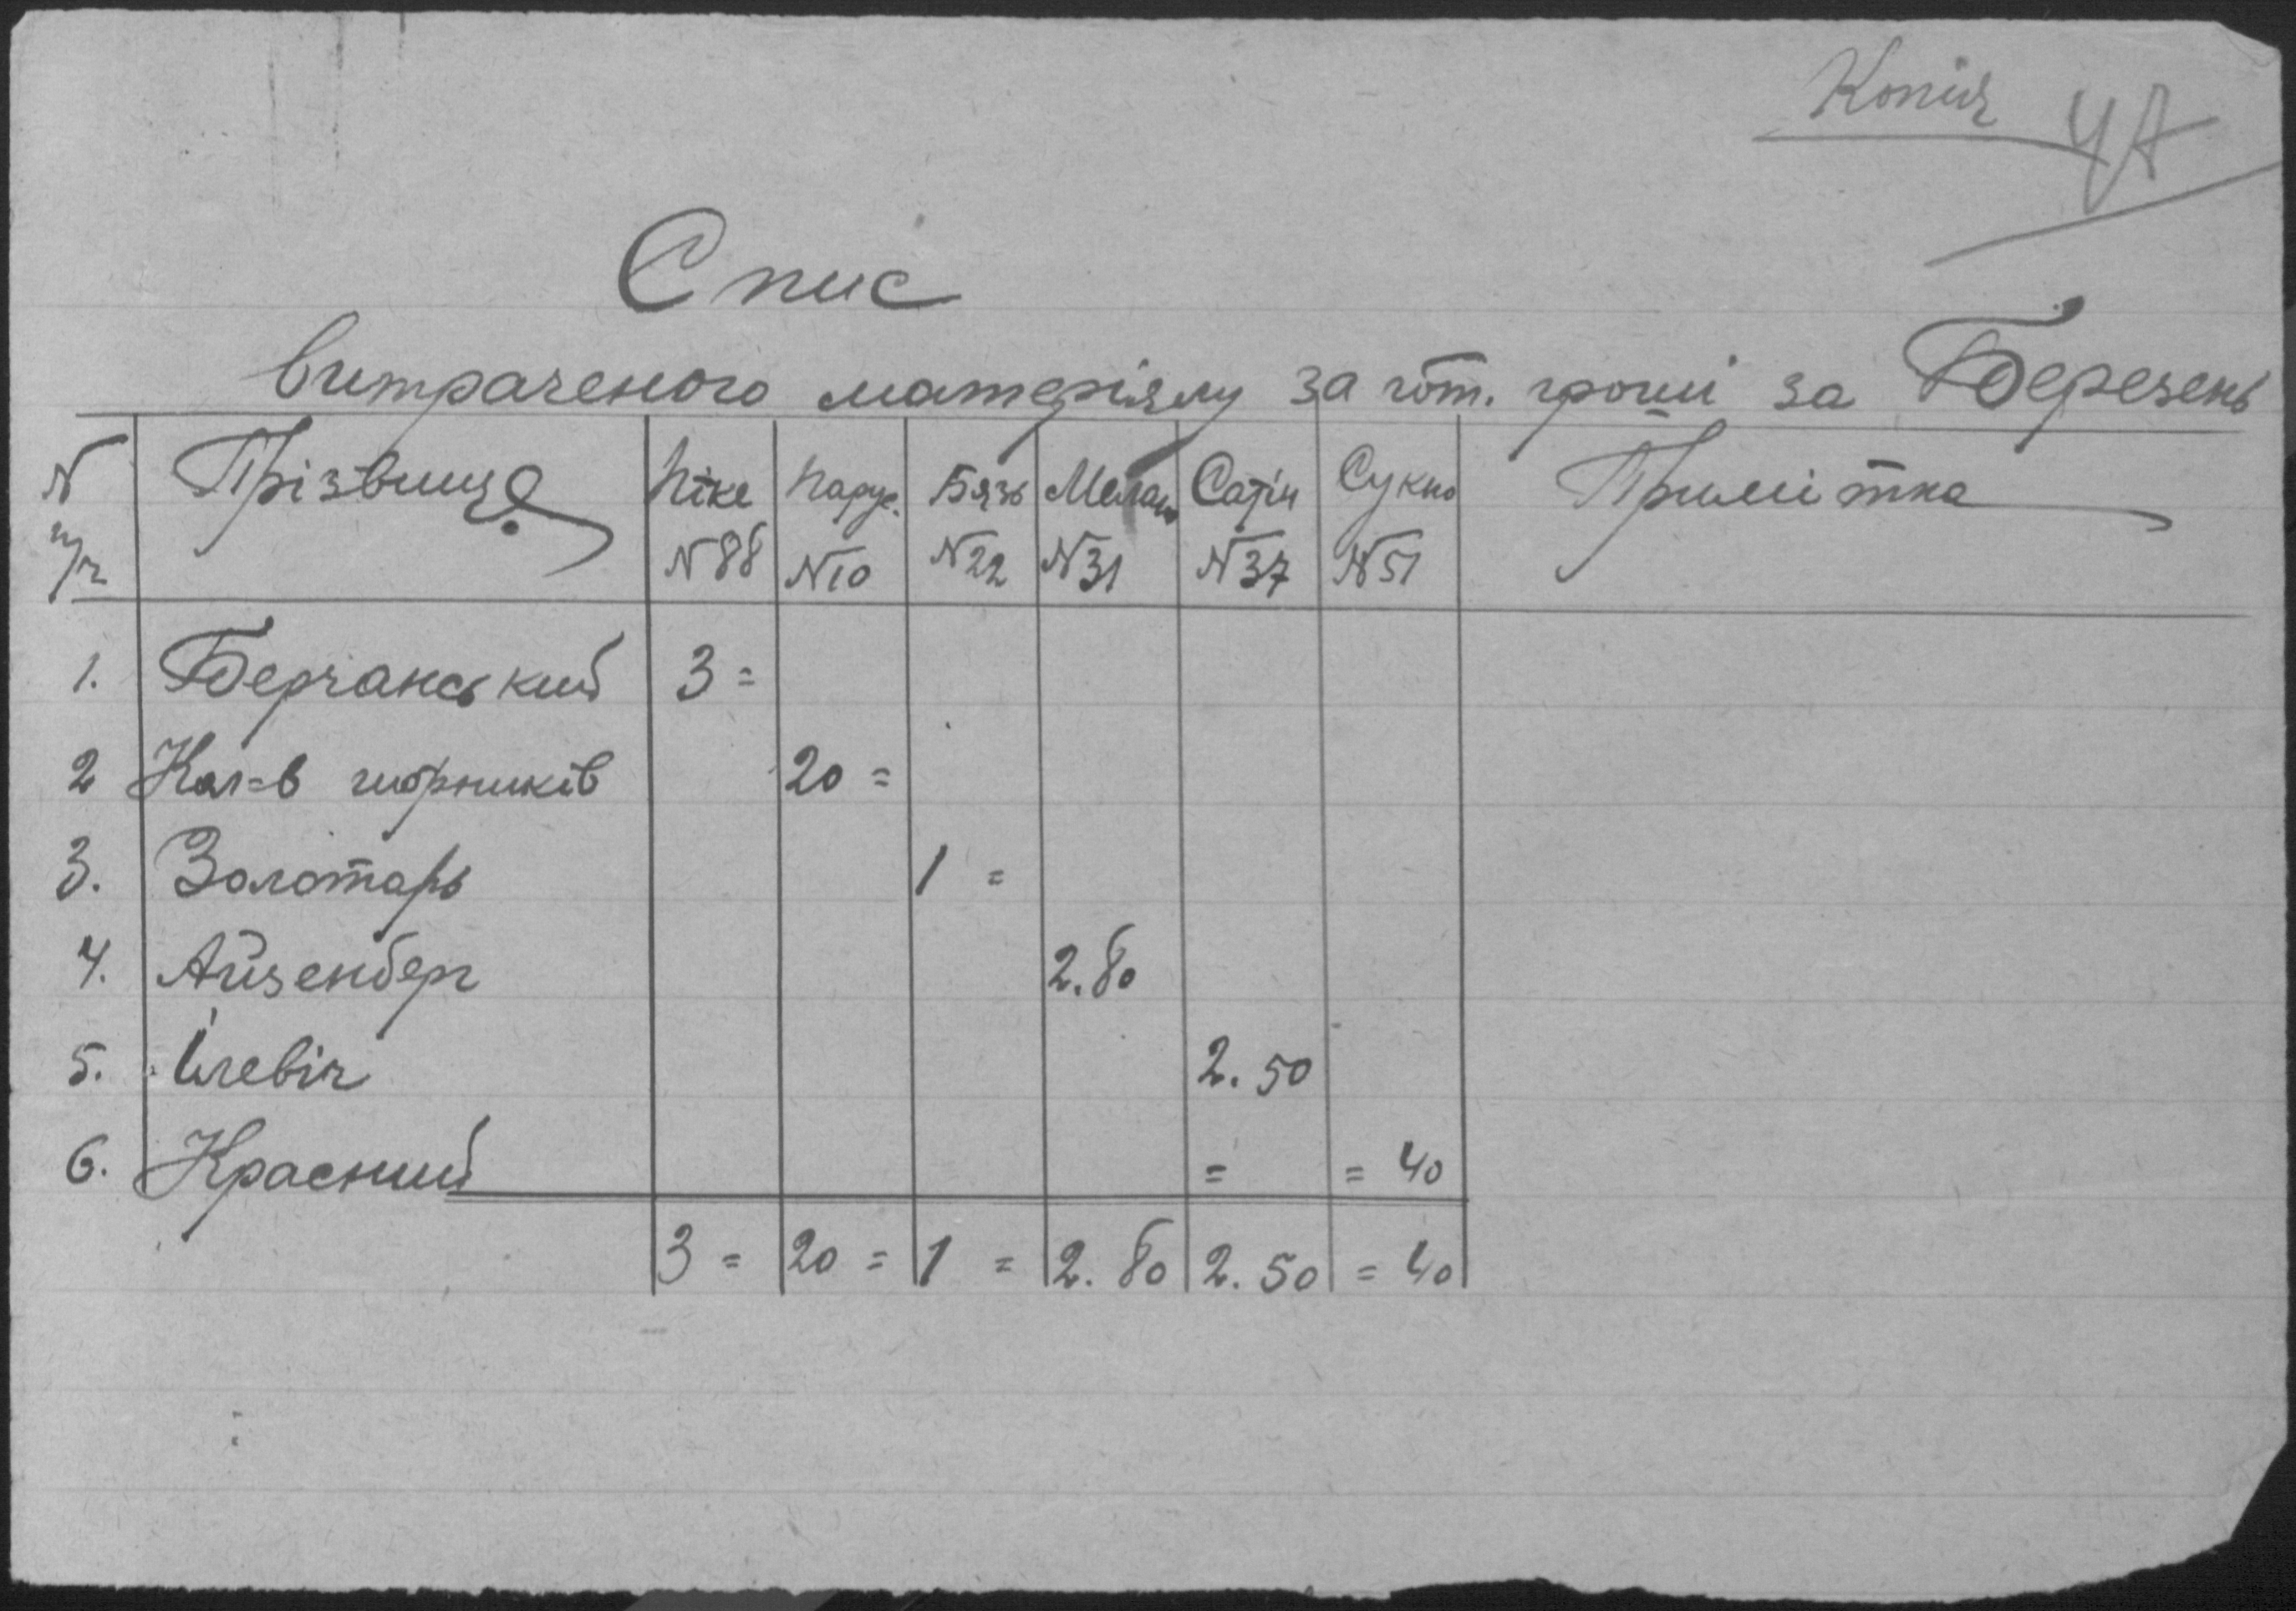 Копія
Спис
витраченого матеріялу за гот. гроші за Березень
N п/ч Прізвище Піке N88 Парус. N10 Бязь N22 Мелан N31 Сатін N37 Сукно N51 Примітка
1. Берчанський 3 =
2 Кол-в 20 =
3. Золотарь 1 =
4. Айзенберг 2.80
5. Ілевіч 2.50
6. Красний = = 40
3 = 20 = 1 = 2.80 2.50 = 40